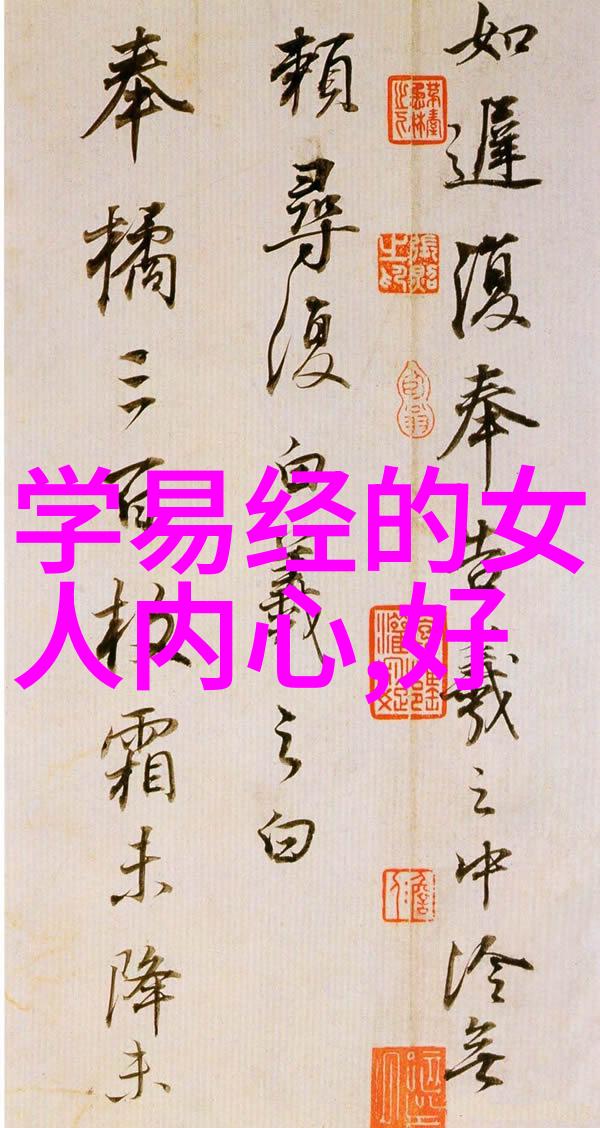 学易经的女
人内心,好
如遲復奉告羲之中冷無
賴尋復白羲之白
奉橘三百枚霜未降未